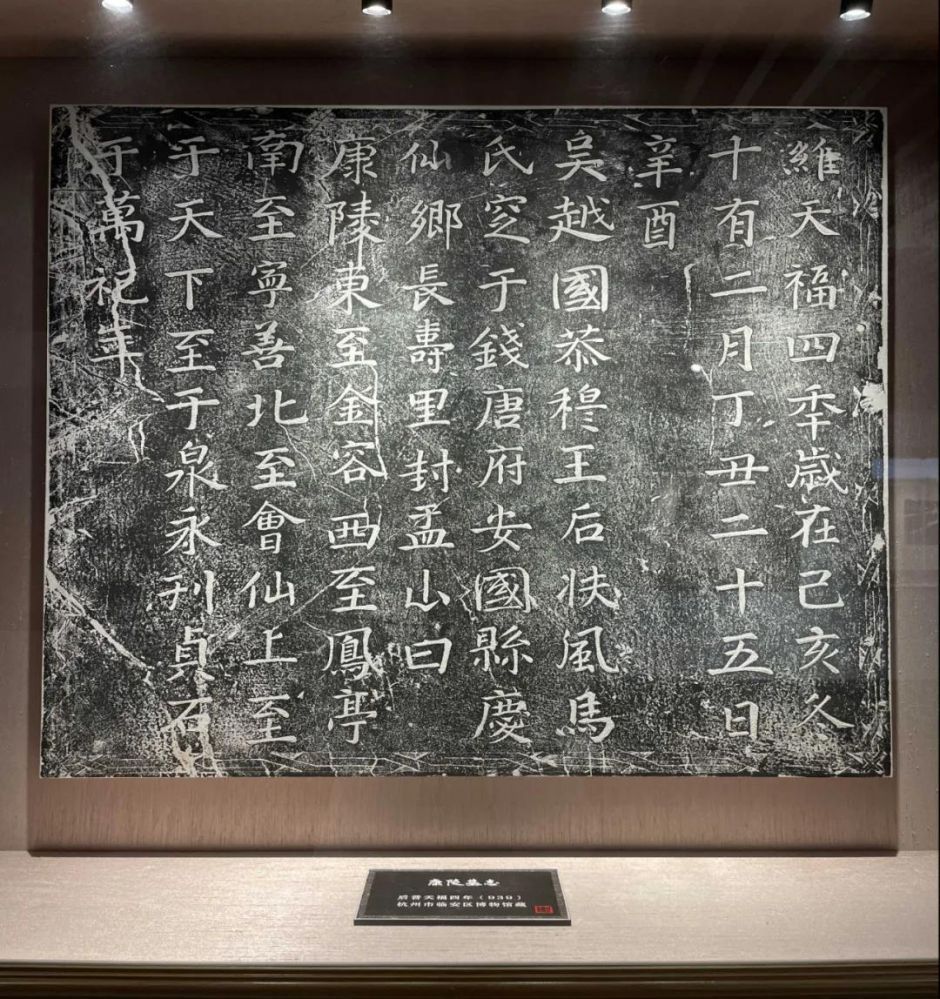 維天福四年歲在己亥冬
十有二月丁丑二十五日
辛酉
吳越國恭穆王后扶風馬
氏窆于錢唐府安國縣慶
仙鄉長壽里封孟山曰
康陵東至金容西至鳳亭
南至寧善北至會仙上至
于天下至于泉永刊貞石
于萬祀年
康陵墓志
后晋天福四年（939）
杭州市临安区博物馆藏